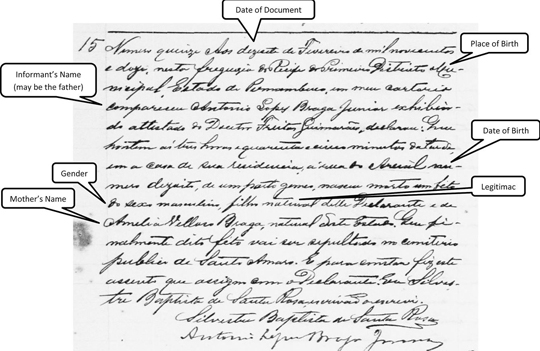 Date of Document
Place of Birth
Informant's Name
(may be the father)
Date of Birth
Gender
Legitimac
Mother's Name
15 Numero quinze Aos dezoito de Fevereiro de mil novecentos
e doze, nesta freguezia do Recife do Primeiro Districto Mu-
nicipal, Estado de Pernambuco, em meu cartorio
compareceu Antonio Lopes Braga Junior exhibin-
do attestado do Doutor Freitas Guimarães, declarou: Que
hontem as tres horas e quarenta e cinco minutos da tarde
em a casa de sua residencia, a rua do Areial nu-
mero dezoito, de um parto gemeo, nasceu morto um feto
do sexo masculino, filho natural delle Declarante e de
Amelia Vellozo Braga, natural deste Estado. Que fi-
nalmente dito feto vai ser sepultado no cemiterio
publico de Santo Amaro. E para constar fiz este
assento que assigno com o Declarante. Eu Silves-
tre Baptista de Santa Rosa, escrivão o escrevi.
Silvestre Baptista de Santa Rosa
Antonio Lopes Braga Junior